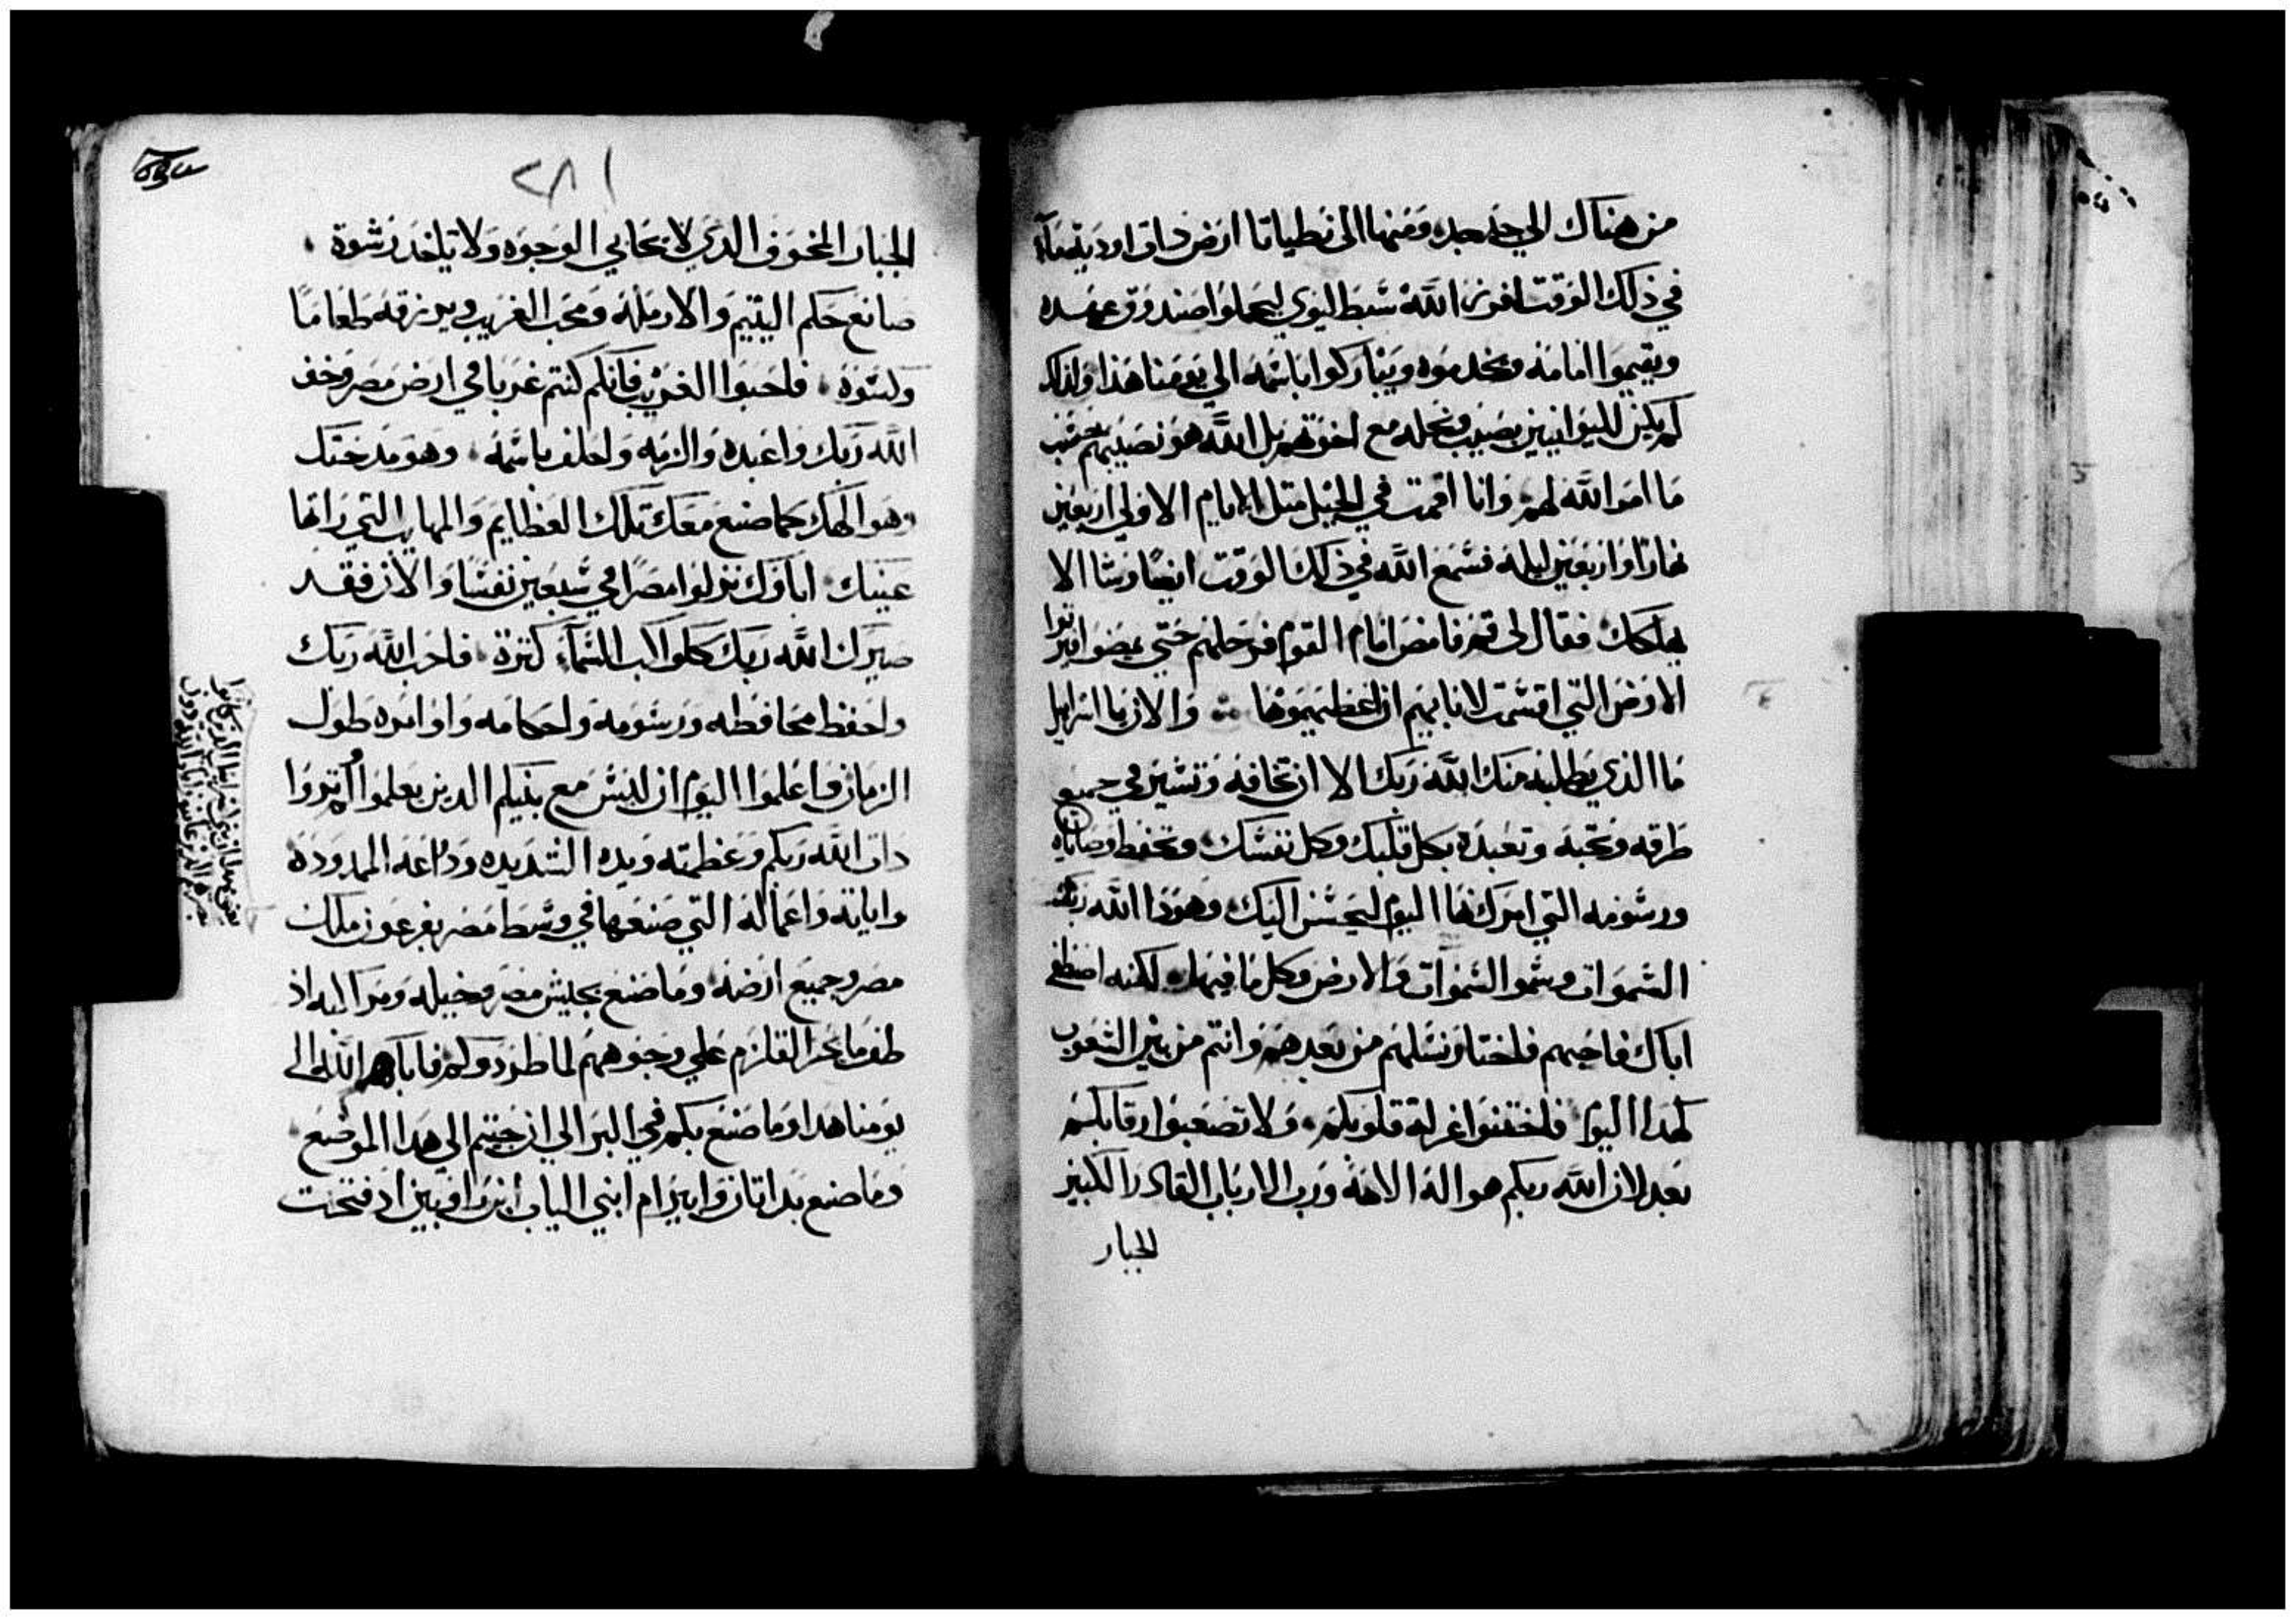 من هناك الي جدجد ومنها الى نطياتا ارض دات اودية مآء
في ذلك الوقت افرز اللّه سبط ليوي ليحملوا صندوق عهده
ويقيموا امامه ويخدموه ويتباركوا باسمه الي يومنا هذا ولذلك
لم يكن لليوانيين نصيب ونحله مع اخوتهم بل اللّه هو نصيبهم بحسب
ما امر اللّه لهم وانا اقمت في الجبل متل الايام الاولي اربعين
نهارًا واربعين ليله فسمع اللّه في ذلك الوقت ايضًا وشا الا
يهلكك فقال لى قم فامض امام القوم فرحلهم حتي يمضوا ليرتوا
الارض التي اقسمت لابايهم ان اعطيهموها والان يا اسراييل
ما الذي يطلبه منك اللّه ربك الا ان تخافه وتسير في جميع
طرقه وتحبه وتعبده بكل قلبك وكل نفسك وتحفظ وصاياه
ورسومه التي امرك بها اليوم ليحسن اليك وهوذا اللّه ربك
السموات وسمو السموات والارض وكل ما فيها لكنه اصطفى
اباك فاحبهم فاختار نسلهم من بعدهم وانتم من بين الشعوب
كهذا اليوم فاختنوا غرلة قلوبكم ولا تصعبوا رقابكم
بعد لان اللّه ربكم هو اله الالهه ورب الارباب القادر الكبير
الجبار
٢٨١
الجبار المخوف الدي لا يحابي الوجوه ولا ياخد رشوة
صانع حكم اليتيم والارمله ومحب الغريب ويرزقه طعامًا
وكسوه فاحبوا الغريب فانكم كنتم غربا في ارض مصر وخف
اللّه ربك واعبده والزمه واحلف باسمه وهو مدحتك
وهو الهك كما صنع معك تلك العظايم والمهايب التي راتها
عينيك اباوك نزلوا مصرًا في سبعين نفسًا والان فقد
صيرك اللّه ربك ككواكب السمآء كترة فاحب اللّه ربك
واحفظ محافظه ورسومه واحكامه واوامره طول
الزمان واعلموا اليوم ان ليس مع بنيكم الدين يعلموا ولم يروا
داب اللّه ربكم وعظمته ويده الشديده ودراعه الممدوده
واياته واعماله التي صنعها في وسط مصر بفرعون ملك
مصر وجميع ارضه وما صنع بجيش مصر وخيله ومراكبه اذ
طف ما بحر القلزم على وجوههم لما طردوكم فاباهم اللّه الى
يومنا هدا وما صنع بكم في البر الي ان جيتم الي هدا الموضع
وما صنع بداتان وابيرام ابني الياب ابن راوبين اد فتحت